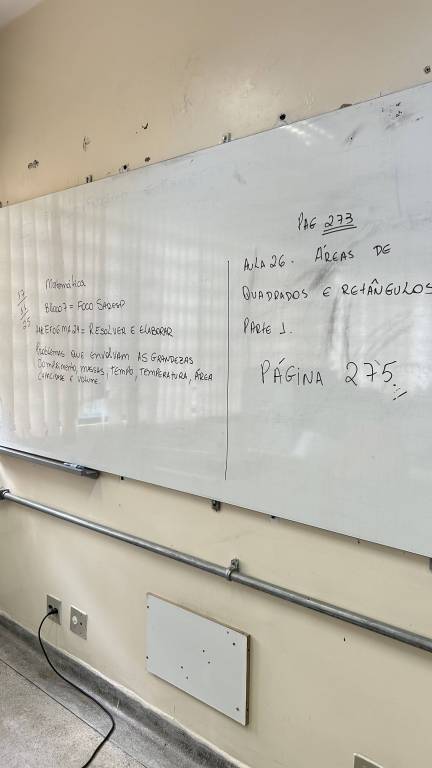 Matemática
17
11
25
Bloco 7 = Foco SARESP
EF06MA24 = RESOLVER E ELABORAR
PROBLEMAS QUE ENVOLVAM AS GRANDEZAS
COMPRIMENTO, MASSAS, TEMPO, TEMPERATURA, ÁREA
CAPACIDADE E VOLUME.
PAG 273
AULA 26. ÁREAS DE
QUADRADOS E RETÂNGULOS
PARTE 1.
PÁGINA 275